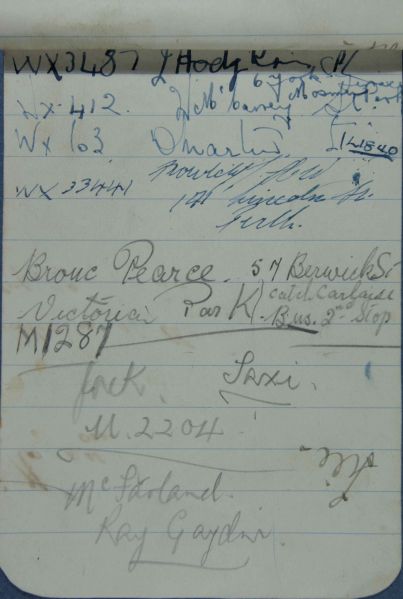 WX3487 J Hodgkins, Cpl
6 York Street
WX 412. J McGarvey Mosman Park
WX 103 D Martin L 1840
WX 33441 149 Lincoln St.
Perth.
Bronc Pearce. 57 Berwick St
Victoria Park catch Carlisle
Bus. 2nd Stop
M1287
Jack. Taxi.
U.2204
McFarland.
Ray Gaydon.